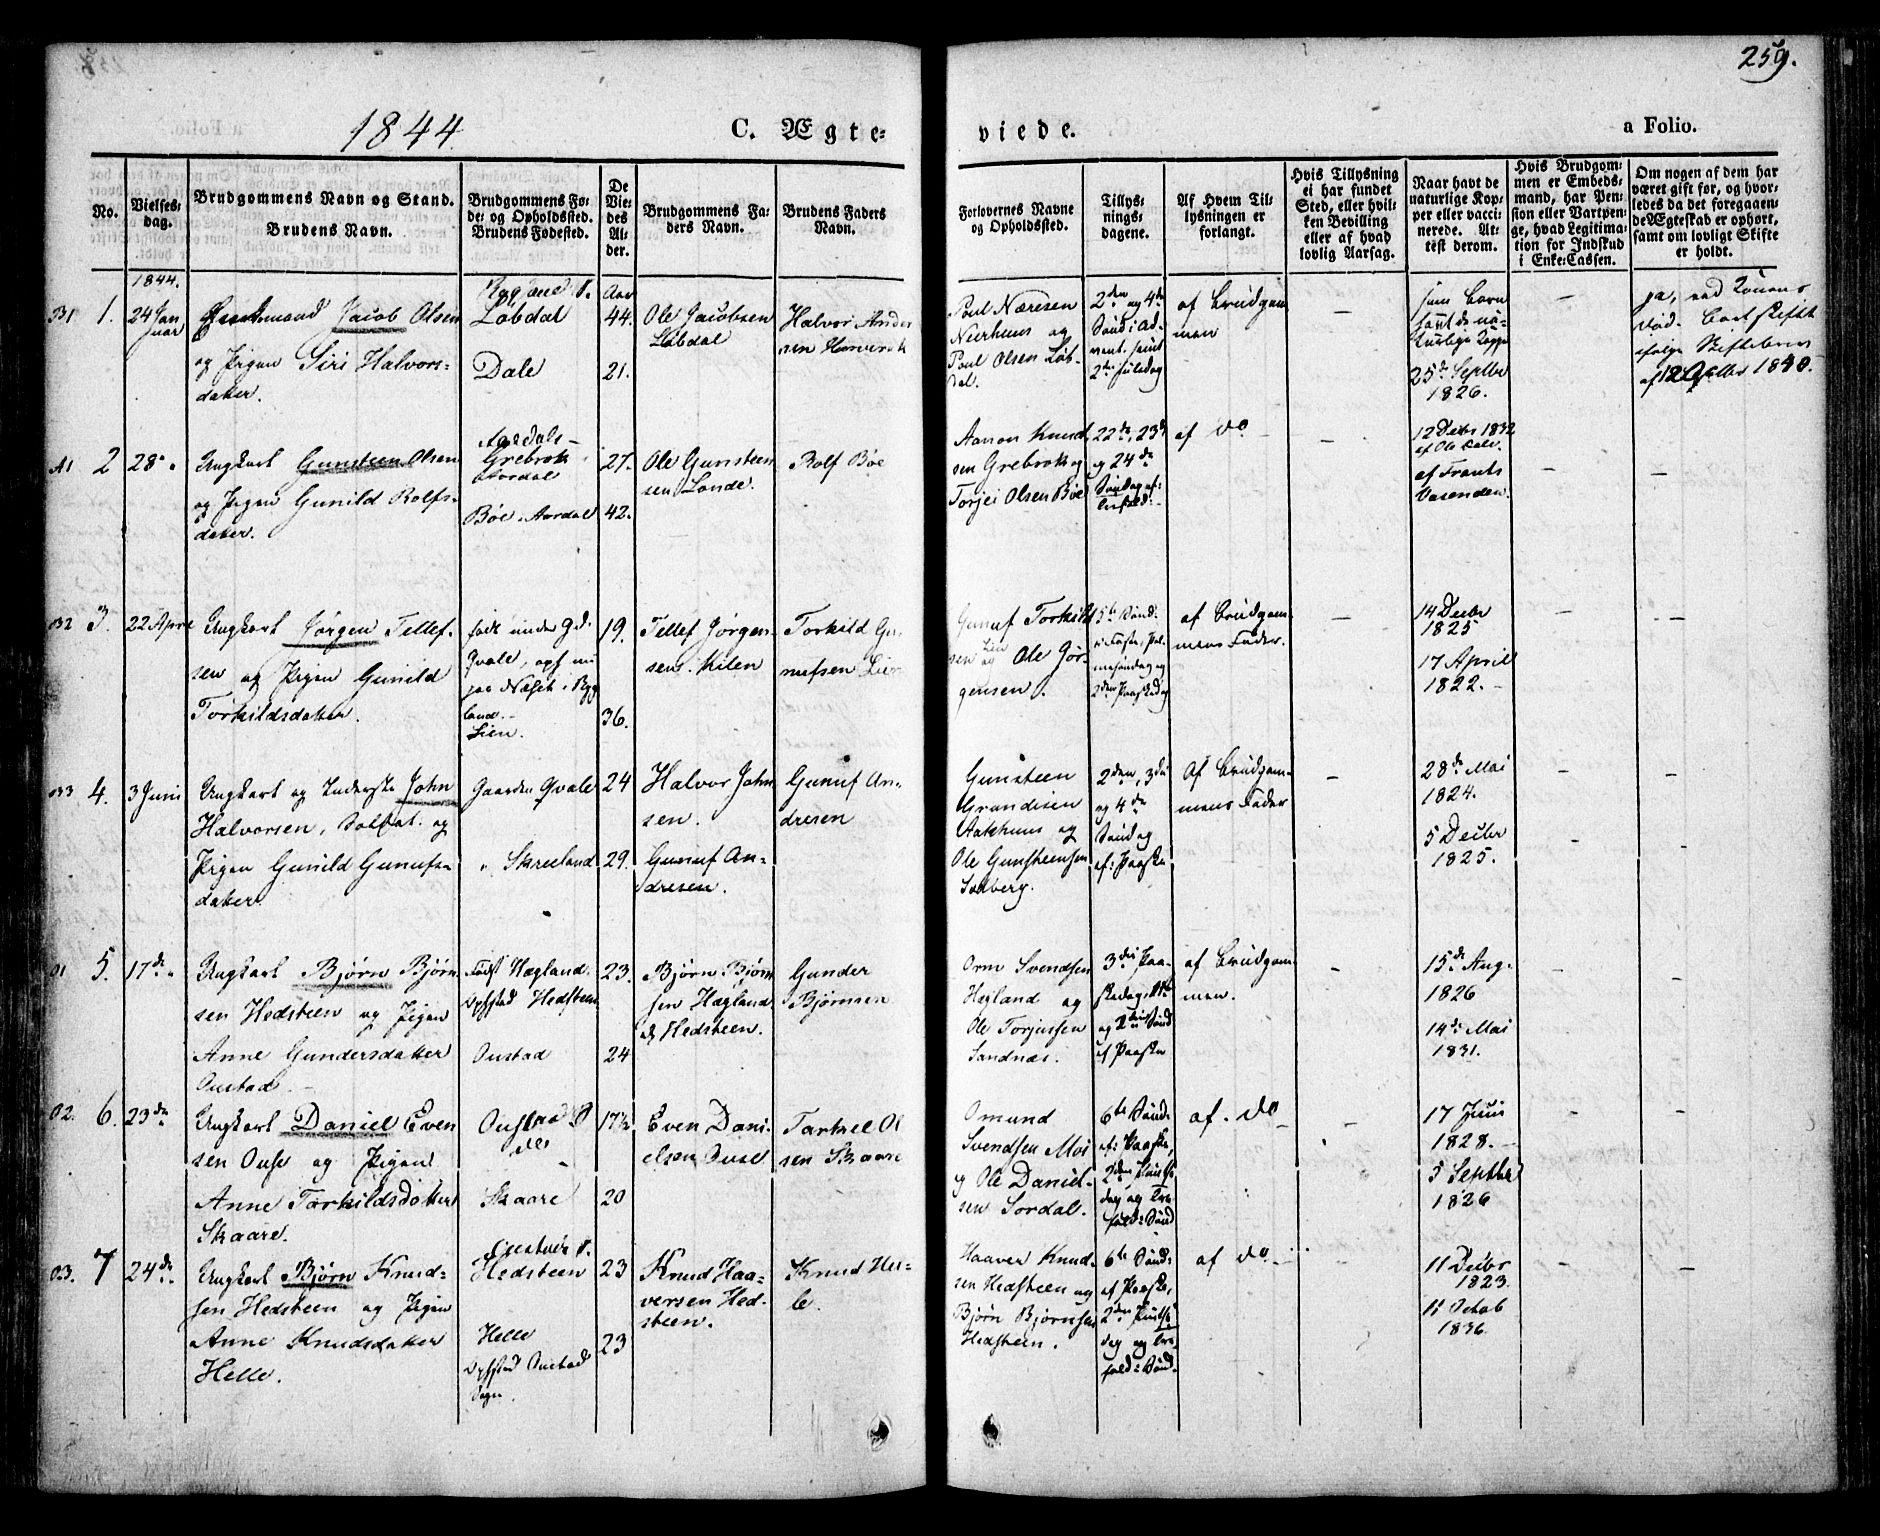 259.
1844.
C. Ægte-
viede.
a Folio.
No.
Vielses-
dag.
Brudgommens Navn og Stand.
Brudens Navn.
Brudgommens Fø-
de- og Opholdssted.
Brudens Fødested.
De
Vie-
des
Al-
der.
Brudgommens Fa-
ders Navn.
Brudens Faders
Navn.
Forlovernes Navne
og Opholdssted.
Tillys-
nings-
dagene.
Af Hvem Til-
lysningen er
forlangt.
Hvis Tillysning
ei har fundet
Sted, eller hvil-
ken Bevilling
eller af hvad
lovlig Aarsag.
Naar havt de
naturlige Kop-
per eller vacci-
nerede. At-
test derom.
Hvis Brudgom-
men er Embeds-
mand, har Pen-
sion eller Vartpen-
ge, hvad Legitima-
tion for Indskud
i Enke-Cassen.
Om nogen af dem har
været gift før, og hvor-
ledes da det foregaaen-
de Ægteskab er ophørt,
samt om lovligt Skifte
er holdt.
1844.
B1 1. 24 Jan
uar
Jacob Olsen
og Pigen Siri Halvors-
datter.
Løbdal
Dale
Aar
44.
21.
Ole Jacobsen
Løbdal
Halvor Ander
sen
Poul
og
Poul Olsen Løb-
dal.
2den og 4de
Sønd: i Ad-
vent. samt
2den Juledag
af Brudgom
men
som Barn
havt de na-
turlige Kopper
25de Septbr
1826.
ja, ved Konens
Død.
af 12 1840.
A1 2 28.
Ungkarl Gunsteen Olsen
og Pigen Gunild Rolfs-
datter.
Grebrok
Aardal
Bøe i Aardal
27.
42.
Ole Gunsteen
sen Londe.
Rolf Bøe
Aanon Knud
sen Grebrok og
Torjei Olsen Bøe
22de, 23de
og 24de
Søndag af
af do
12 Debr 1832
af Frants
Vasenden.
B2 3. 22 April
Ungkarl Jørgen Tellef-
sen og Pigen Gunild
Torkildsdatter.
født under Gd.
Qvale, oph nu
paa Næset i Byg
land.
Lien.
19.
36.
Tellef Jørgen-
sen. Kilen
Torkild Gu-
nufsen Lien
Gunuf Torkild
sen Lien og Ole Jør-
gensen.
5te Sønd:
i Faste, Pal-
mesøndag og
2den Paaskedag
af Brudgom-
mens Fader.
14 Decbr
1825
17 April
1822.
B3 4. 3 Juni
Ungkarl og Inderste John
Halvorsen, Soldat og
Pigen Gunild Gunufs-
datter.
Gaarden Qvale
" Skreeland
24
29.
Halvor John
sen.
Gunuf An-
dresen.
Gunuf An-
dresen
Gunsteen
og
Ole Gunsteensen
Solberg.
2den, 3die
og 4de
Søndag
ef: Paaske
Af Brudgom-
mens Fader
28de Mai
1824.
5 Decbr
1825.
O1 5. 17de
Ungkarl Bjørn Bjørn
sen Hedsteen og Pigen
Anne Gundersdatter
Oustad.
Født Hægland.
Opholdssted Hedsteen
Oustad
23.
24
Bjørn Bjørn
sen Hægland
og Hedsteen.
Gunder
Bjørnsen
Orm Svendsen
Hegland og
Ole Torjussen
Sandnæs.
3die Paa-
skedag,
og Sønd
ef Paaske
af Brudgom-
men.
15de Aug.
1826
14de Mai
1831.
O2. 6. 23de
Ungkarl Daniel Even
sen Ouse og Pigen
Anne Torkildsdatter
Skaare.
Skaare
17½
20
Even Dani-
elsen Ouse
Tarkel Ol
sen Skaare
Omund
Svendsen Moi
og Ole Daniel-
sen Sordal.
6te Sønd:
ef: Paaske,
2den Pintse
dag og Tre
fold: Sønd
af. do
17 Juni
1828.
5 Septbr
1826
O3. 7 24de.
Ungkarl Bjørn Knud-
sen Hedsteen og Pigen
Anne Knudsdatter
Helle.
Hedsteen
Helle
Opholdssted Oustad
Sogn.
23
23
Knud Haa-
versen Hed-
steen.
Knud Hel-
le.
Haaver Knud-
sen Hedsteen og
Bjørn Bjørnsen
Hedsteen.
6te Sønd:
ef Paaske,
2den Pintse
dag og Tre-
fold: Sønd.
af do.
11 Debr
1823.
11 Octob
1836.